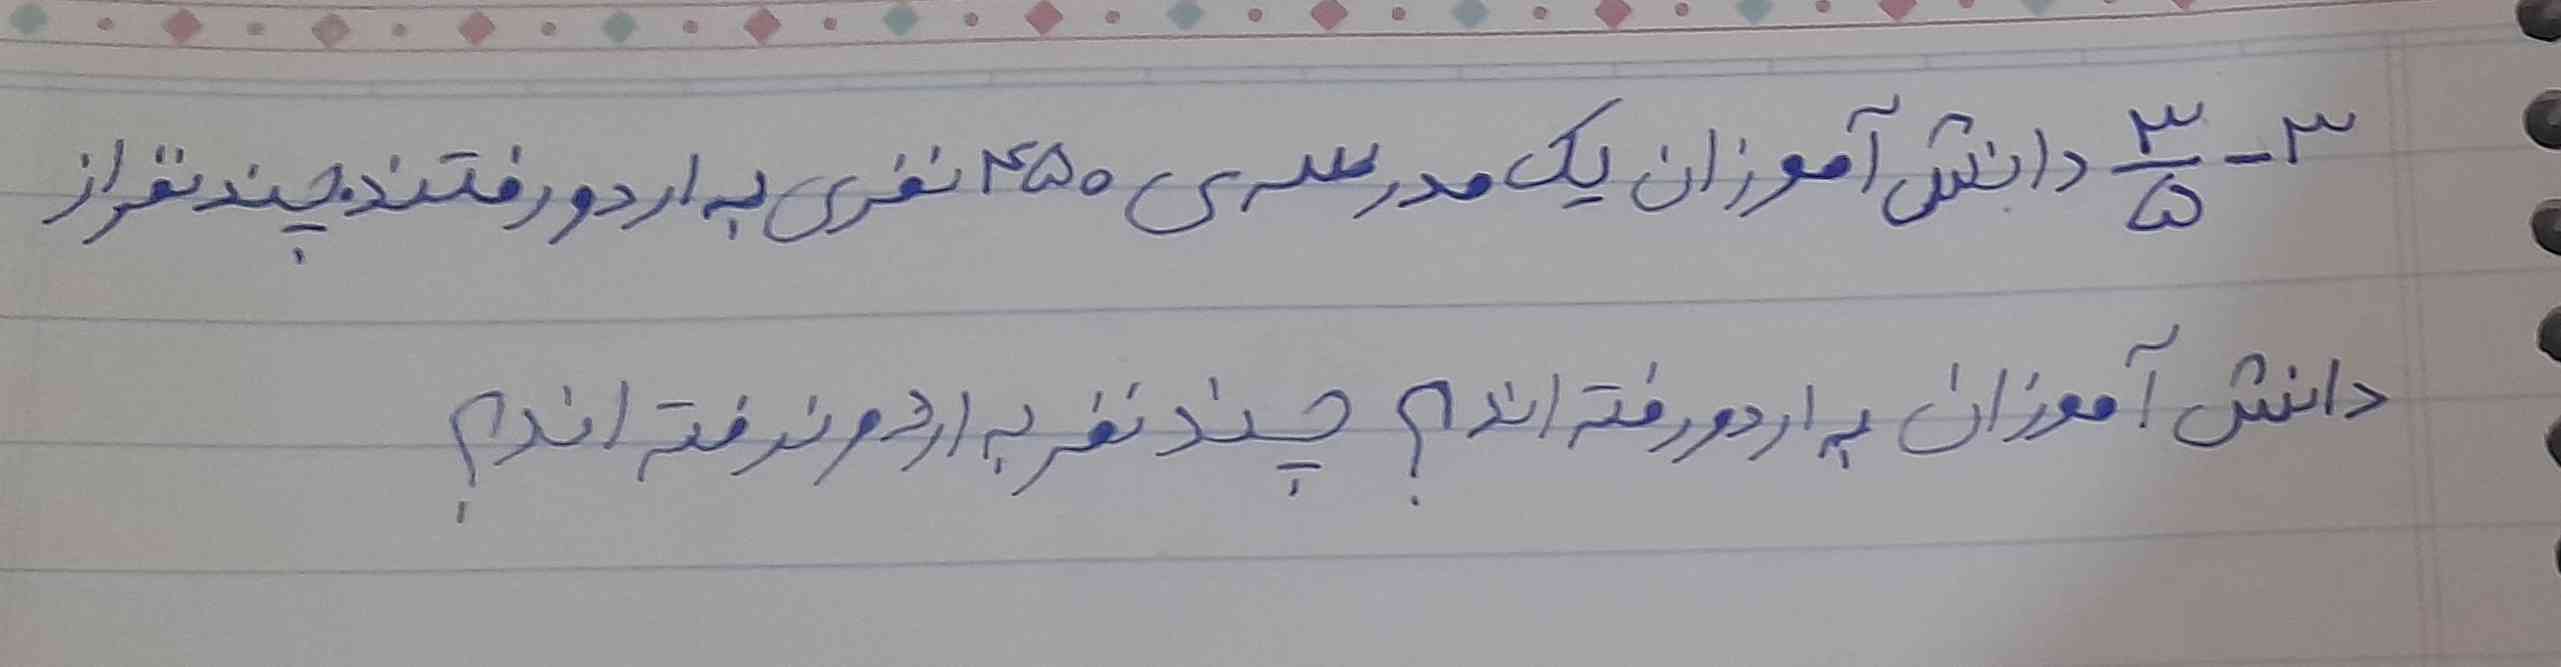 ۳- ۳/۵ دانش آموزان یک مدرسه ی ۴۵۰ نفری به اردو رفتند. چند نفر از
دانش آموزان به اردو رفته اند؟ چند نفر به اردو نرفته اند؟